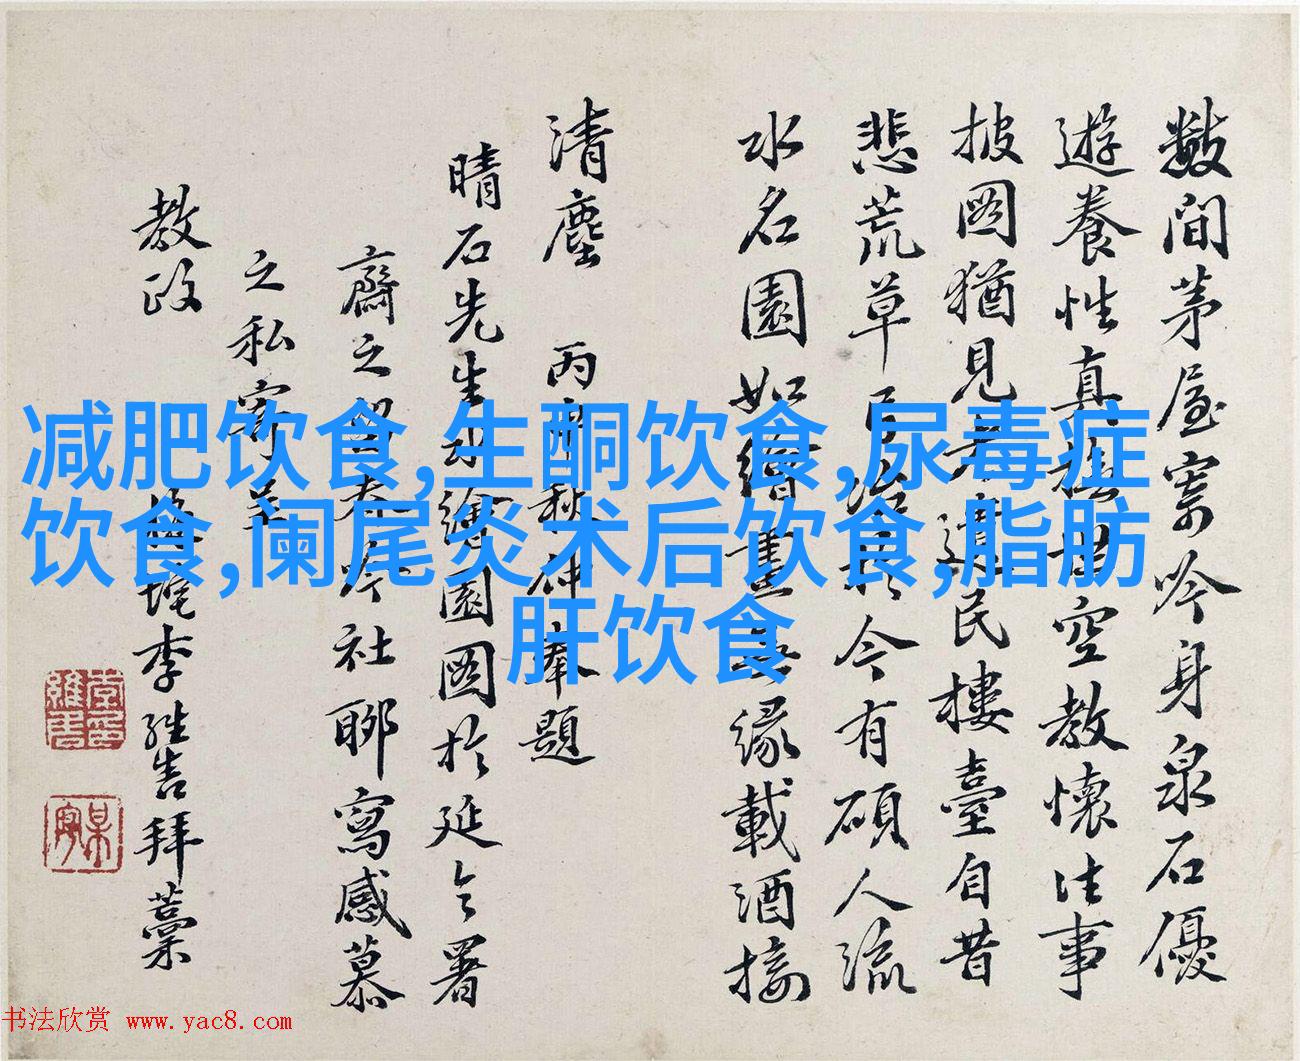 數間茅屋寄吟身泉石優
遊養性真
空教懷往事
披圖猶見
遺民樓臺自昔
悲荒草
於今有碩人流
水名園如繪畫
緣載酒接
清塵
丙
秋
奉題
晴石先生
繪園圖於延令署
齋之
社聊寫感慕
之私寄呈
教政
李
拜藁
减肥饮食,生酮饮食,尿毒症
饮食,阑尾炎术后饮食,脂肪
肝饮食
书法欣赏 www.yac8.com